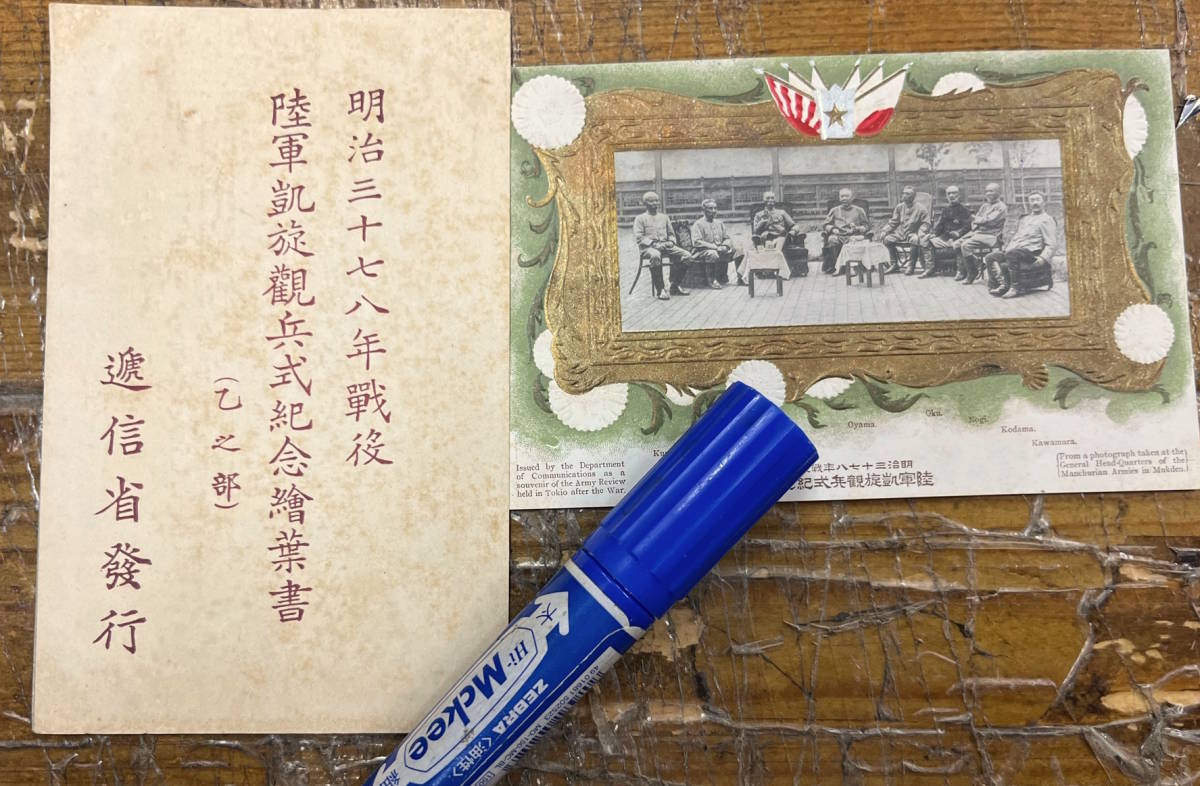 明治三十七八年戰役
陸軍凱旋觀兵式紀念繪葉書
(乙之部)
遞信省發行
Oyama.
Oku.
Nogi.
Kodama.
Kawamura.
Issued by the Department
of Communications as a
souvenir of the Army Review
held in Tokio after the War.
明治三十七八年戰
陸軍凱旋觀兵式紀
From a photograph taken at the
General Head-Quarters of the
Manchurian Armies in Mukden.
大
Hi-Mckee
ZEBRA〈油性〉